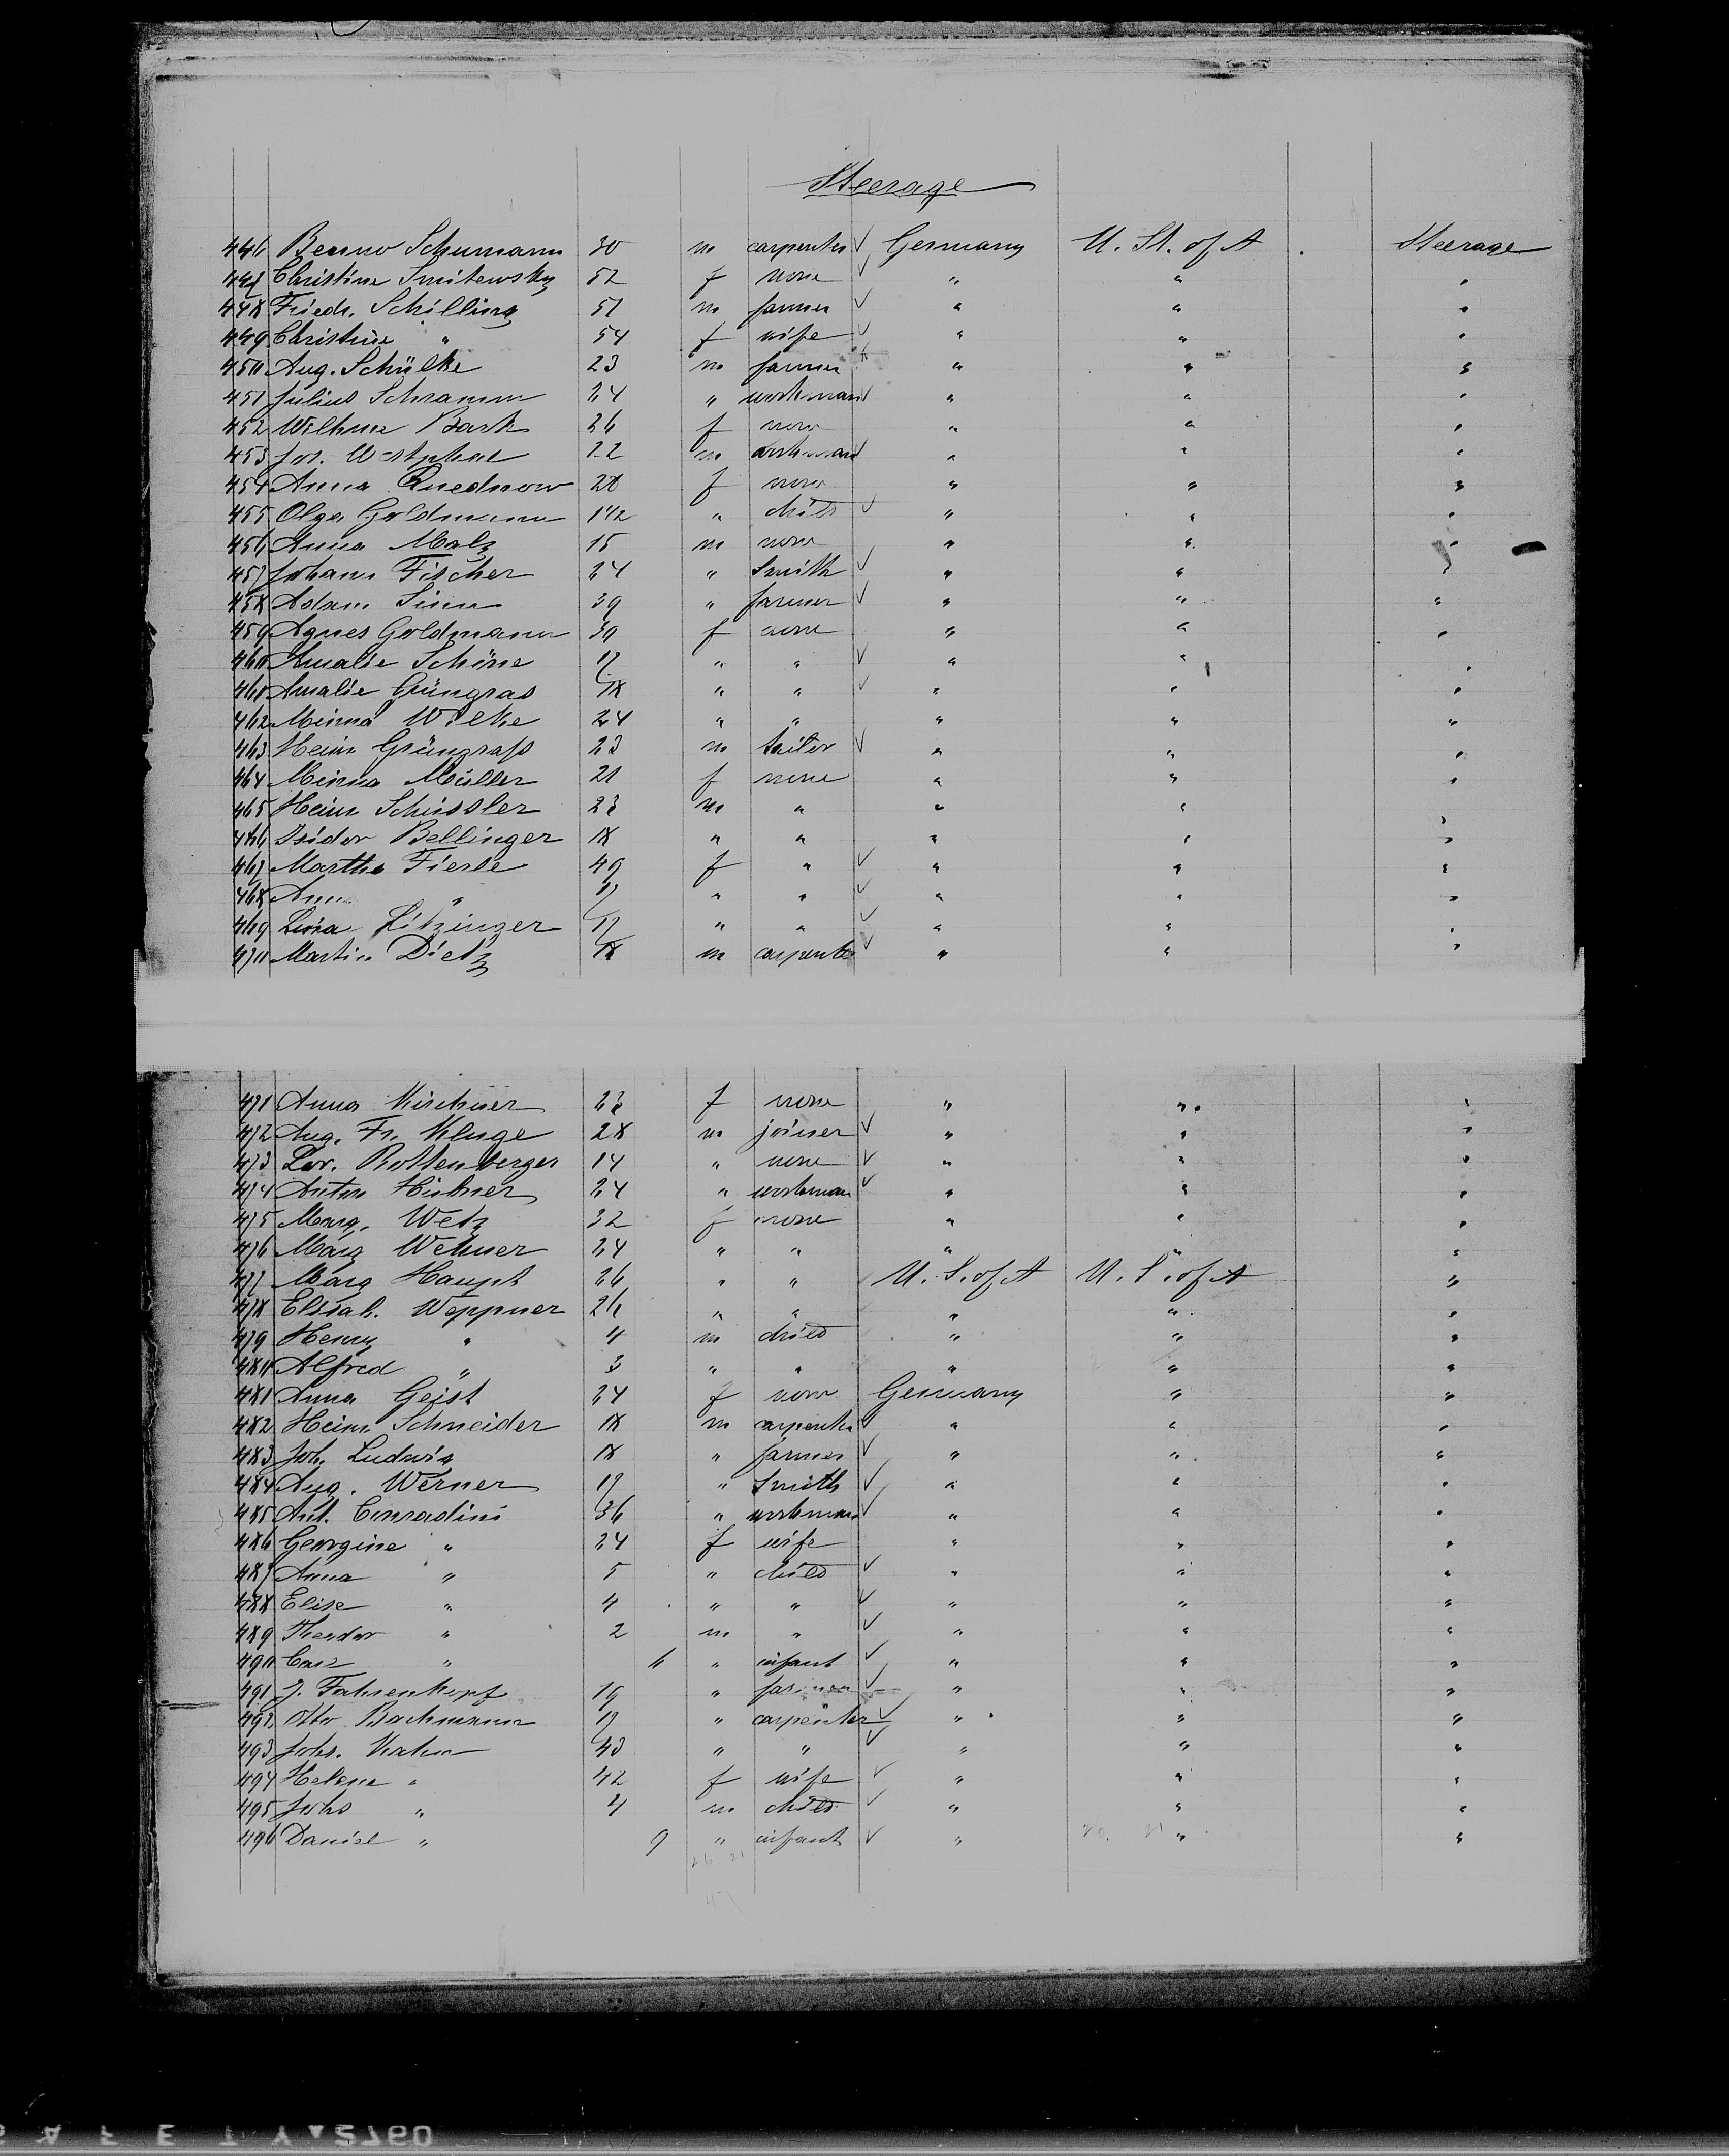 Steerage
446 Benno Schumann 30 m carpenter Germany U. St. of A Steerage
447 Christine Smitewsky 52 f none " " "
448 Friedr. Schilling 51 m farmer " " "
449 Christine " 54 f wife " " "
450 Aug. Schülke 23 m farmer " " "
451 Julius Schramm 24 " workman " " "
452 Wilhme 26 f none " " "
453 Jos. Westphal 22 m workman " " "
454 Anna Quednow 20 f none " " "
455 Olga Goldmann 1 1/2 " child " " "
456 Anna Malz 15 m none " " "
457 Johann Fischer 24 " Smith " " "
458 Adam Sinn 39 " farmer " " "
459 Agnes Goldmann 30 f none " " "
460 Amalie Schöne 17 " " " " "
461 Amalie Grüngras 18 " " " " "
462 Minna Wilke 24 " " " " "
463 Heinr Grüngraß 23 m tailor " " "
464 Minna Müller 21 f none " " "
465 Heinr Schüssler 23 m " " " "
466 Isidor Bellinger 18 " " " " "
467 Martha Fierle 49 f " " " "
468 Anna " 17 " " " " "
469 Lina Litzinger 17 " " " " "
470 Martin Dietz 18 m carpenter " " "
471 Anna Kirchner 23 f none " " "
472 Aug. Fr. Kluge 28 m joiner " " "
473 Lor. Rottenberger 14 " none " " "
474 Anton Hübner 24 " workman " " "
475 Marg. Wetz 32 f none " " "
476 Marg Wehner 24 " " " " "
477 Marg Haupt 26 " " U. S. of A U. S. of A "
478 Elisab. Weppner 26 " " " " "
479 Henry " 4 m child " " "
480 Alfred " 3 " " " " "
481 Anna Geist 24 f none Germany " "
482 Heinr Schneider 18 m carpenter " " "
483 Joh. Ludwig 18 " farmer " " "
484 Aug. Werner 17 " Smith " " "
485 Ant. Conradini 36 " workman " " "
486 Georgine " 24 f wife " " "
487 Anna " 5 " child " " "
488 Elise " 4 " " " " "
489 Theodor " 2 m " " " "
490 " 6 " infant " " "
491 J. Fahrenkopf 19 " farmer " " "
492 Otto Bachmann 17 " carpenter " " "
493 Johs. 43 " " " " "
494 Helene " 42 f wife " " "
495 Johs " 4 m child " " "
496 Daniel " 9 " infant " " "
26 21
47
SAFETY 2760